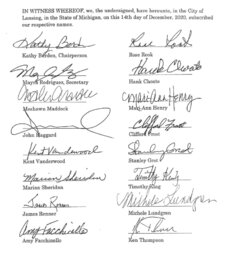 IN WITNESS WHEREOF, we, the undersigned, have hereunto, in the City of
Lansing, in the State of Michigan, on this 14th day of December, 2020, subscribed
our respective names.
Kathy Berden
Kathy Berden, Chairperson
Rose Rook
Rose Rook
Mayra Rodriguez, Secretary
Hank Choate
Hank Choate
Meshawn Maddock
Mari-Ann Henry
Mari-Ann Henry
John Haggard
Clifford Frost
Clifford Frost
Kent Vanderwood
Kent Vanderwood
Stanley Grot
Stanley Grot
Marian Sheridan
Marian Sheridan
Timothy King
Timothy King
James Renner
Michele Lundgren
Michele Lundgren
Amy Facchinello
Amy Facchinello
Ken Thompson